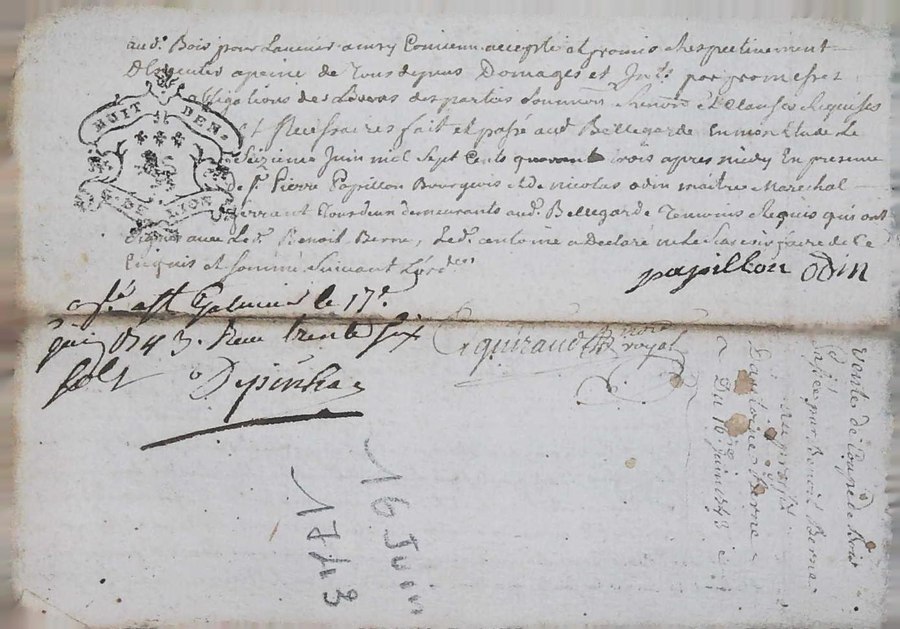 aud. Bois pour Lavenir
accepté et promis respectivement
a peine de Tous depens Domages et Int.ts par promesses
obligations des parties et Clauses Requises
HUIT DEN.
G. DE LION
et Necessaires fait et passé aud. Bellegarde en mon Etude Le
Seizieme Juin mil Sept Cents quarante trois apres midy En presence
de S. Pierre Papillon Bourgeois et de nicolas odin maitre Marechal
ferrant Tous deux demeurants aud. Bellegarde Temoins Requis qui ont
signé avec Led. Benoit Berne, Led. antoine a Declaré ne Le Scavoir faire de Ce
Enquis et sommé Suivant Lord.
papillon odin
le 17e
juin 1743. Reçu trente six
sols
royal
Vente de Coupe de Bois
passée par Benoit Berne
au profit
D'antoine Berne
Du 16 juin 1743
16 Juin
1743